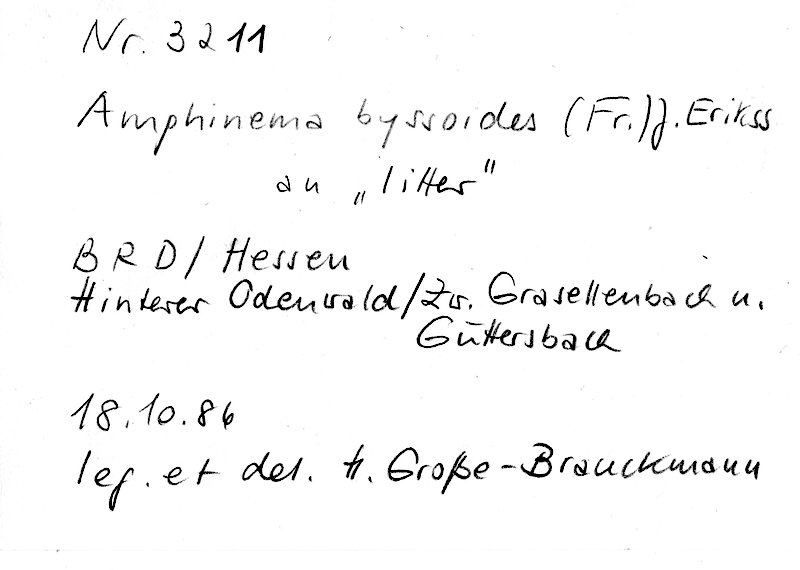 Nr. 3211
Amphinema byssoides (Fr.) J. Erikss
an „litter"
BRD/Hessen
Hinterer Odenwald/Zw. Grasellenbach u.
Güttersbach
18.10.86
leg. et det. H. Große-Brauckmann